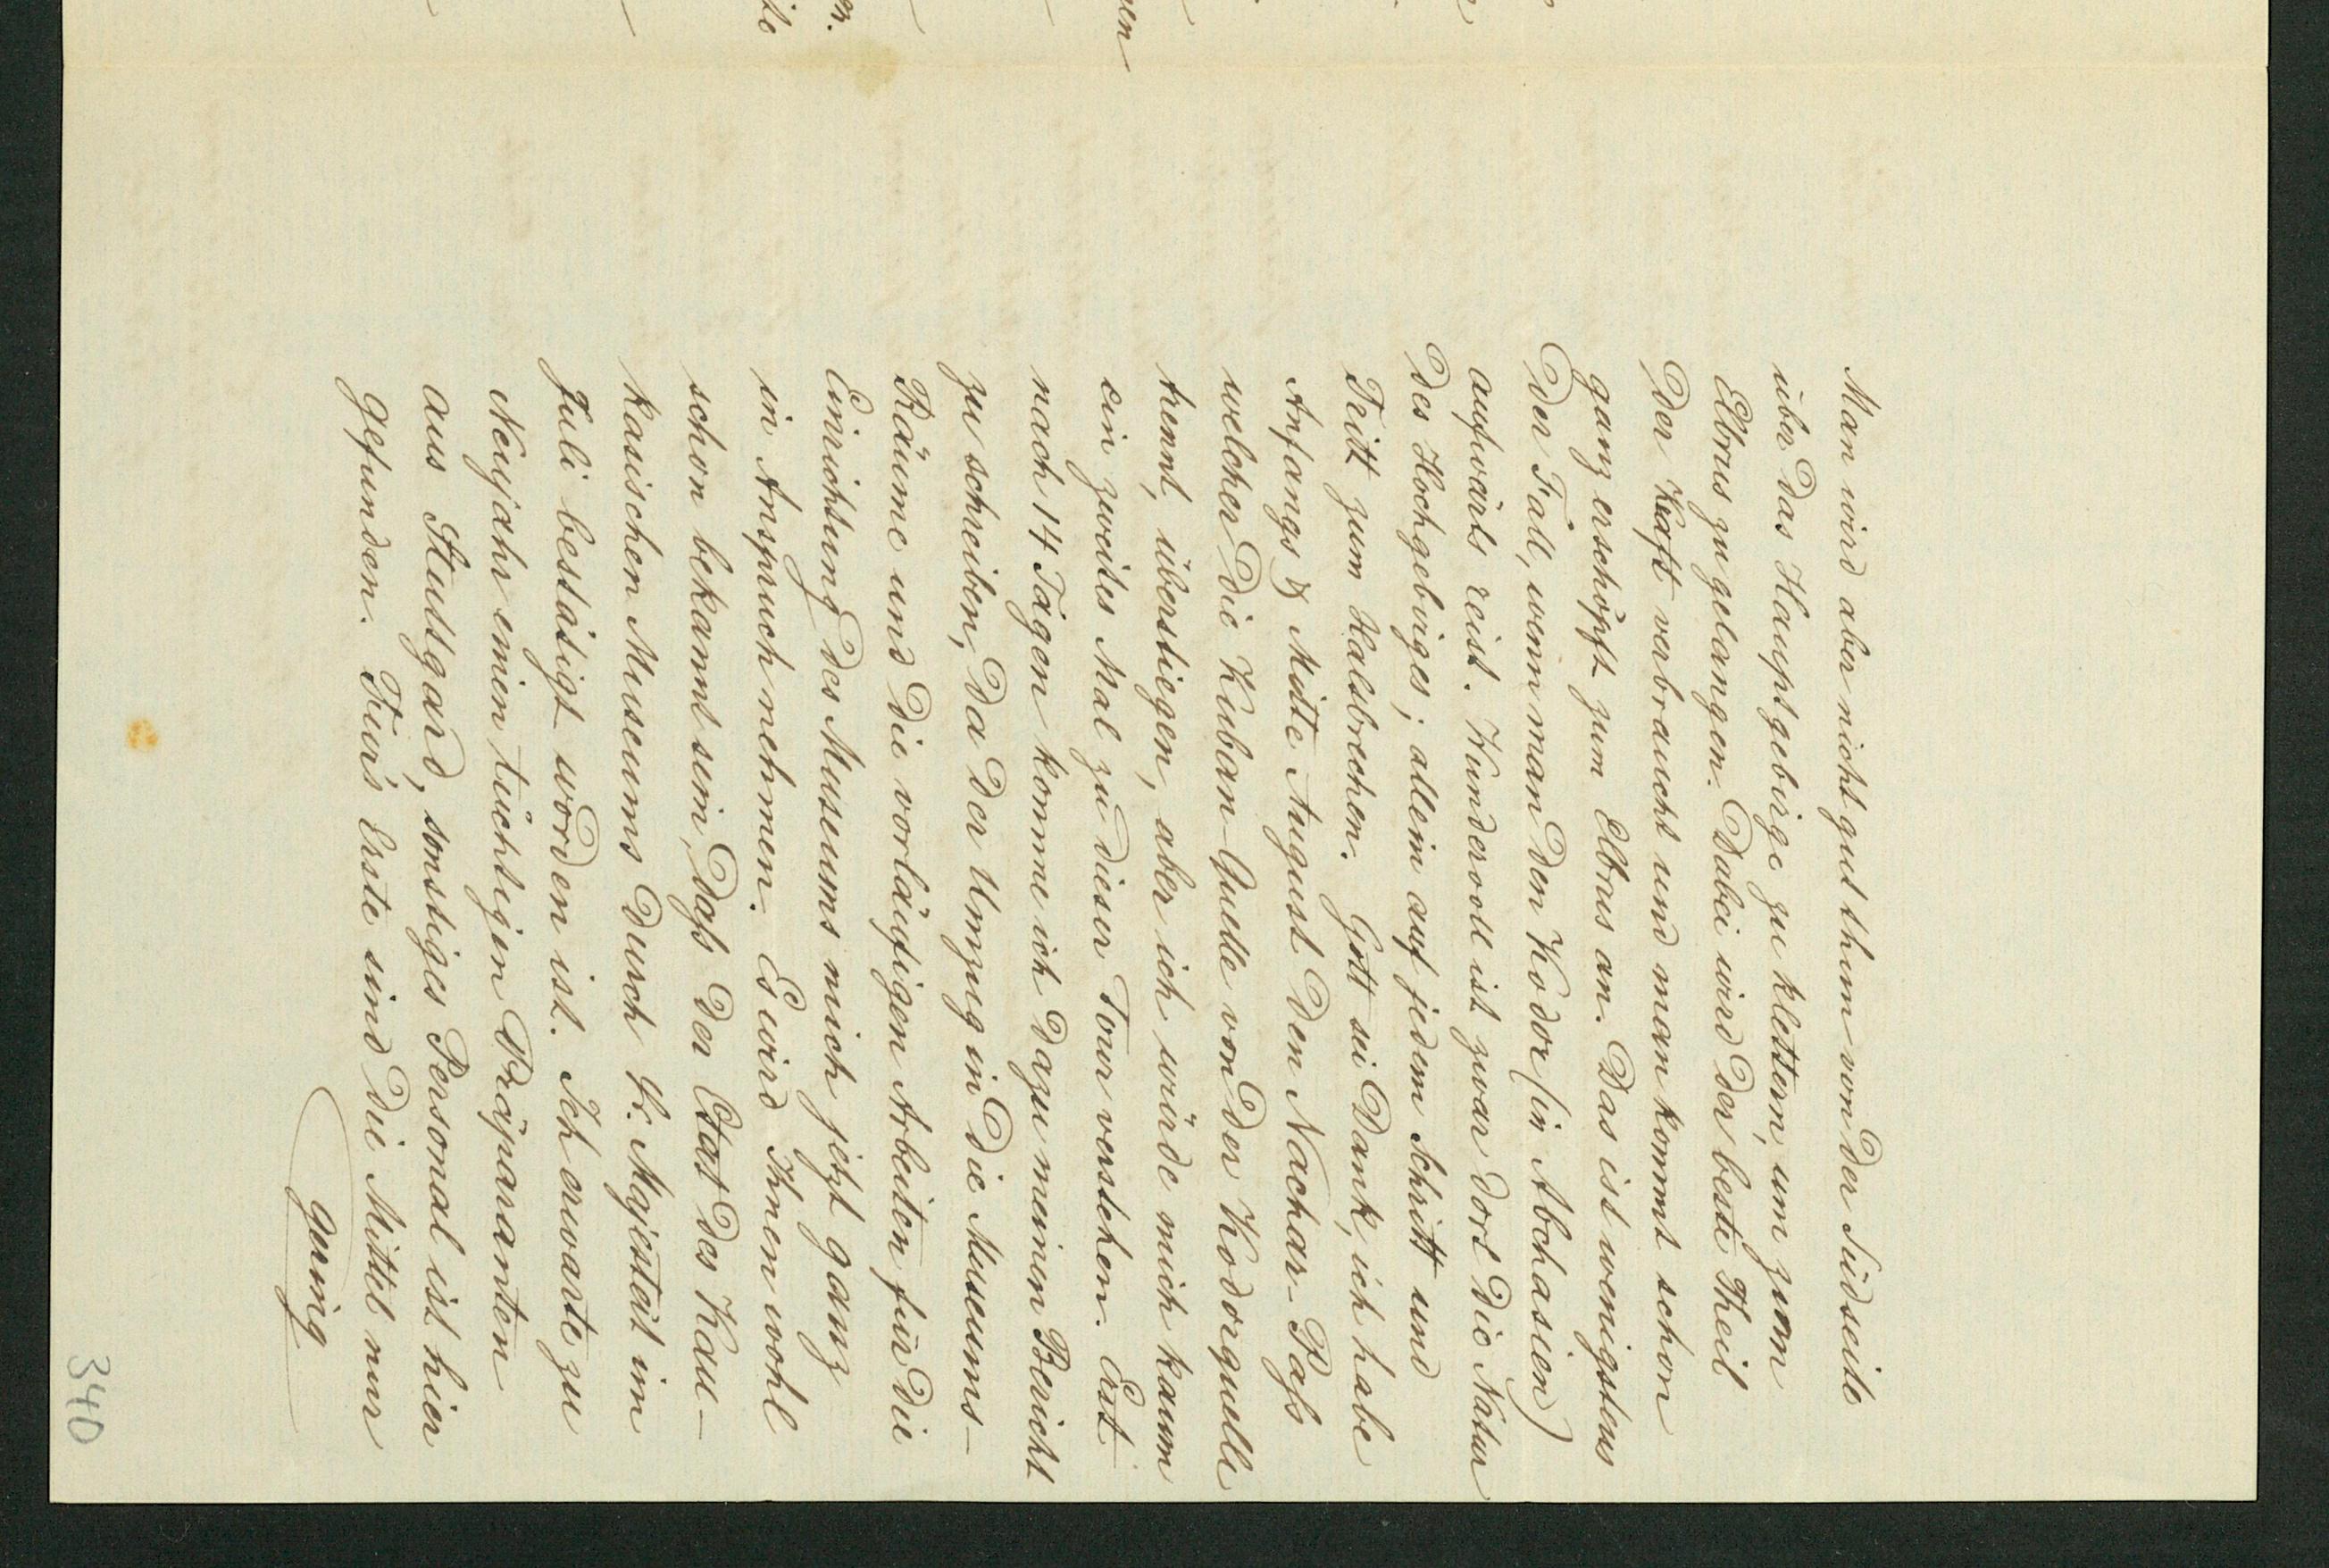 Man wird aber nicht gut thun von der Südseite
über das Hauptgebirge zu klettern, um zum
Elbrus zu gelangen. Dabei wird der beste Theil
der Kraft verbraucht und man kommt schon
ganz erschöpft zum Elbrus an. Das ist wenigstens
der Fall, wenn man den Kodor (in Abchasien)
aufwärts reist. Wundervoll ist zwar dort die Natur
des Hochgebirges; allein auf jedem Schritt und
Tritt zum Halsbrechen. Gott sei Dank, ich habe
Anfangs Mitte August den Nachar-Pass
welcher die Kuban-Quelle von der Kodorquelle
trennt, überstiegen, aber ich würde mich kaum
ein zweites Mal zu dieser Tour verstehen. Erst
nach 14 Tagen komme ich dazu meinen Bericht
zu schreiben, da der Umzug in die Museums-
Räume und die vorläufigen Arbeiten für die
Einrichtung des Museums mich jetzt ganz
in Anspruch nehmen. Es wird Ihnen wohl
schon bekannt sein, dass der Etat des Kau-
kasischen Museums durch Sr. Majestät im
Juli bestätigt worden ist. Ich erwarte zu
Neujahr einen tüchtigen Präparanten
aus Stuttgard, sonstiges Personal ist hier
gefunden. Für's Erste sind die Mittel nur
gering
340
en
er.
ite